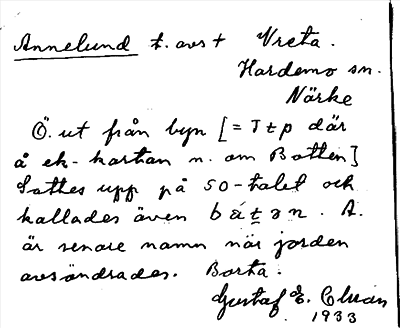 Annelund t. avs + Vreta.
Hardemo sn.
Närke
Ö. ut från byn [= Ttp där
å ek-kartan n. om Botten]
Sattes upp på 50-talet och
kallades även bátən. A.
är senare namn när jorden
avsöndrades. Borta.
Gustaf E.
1933